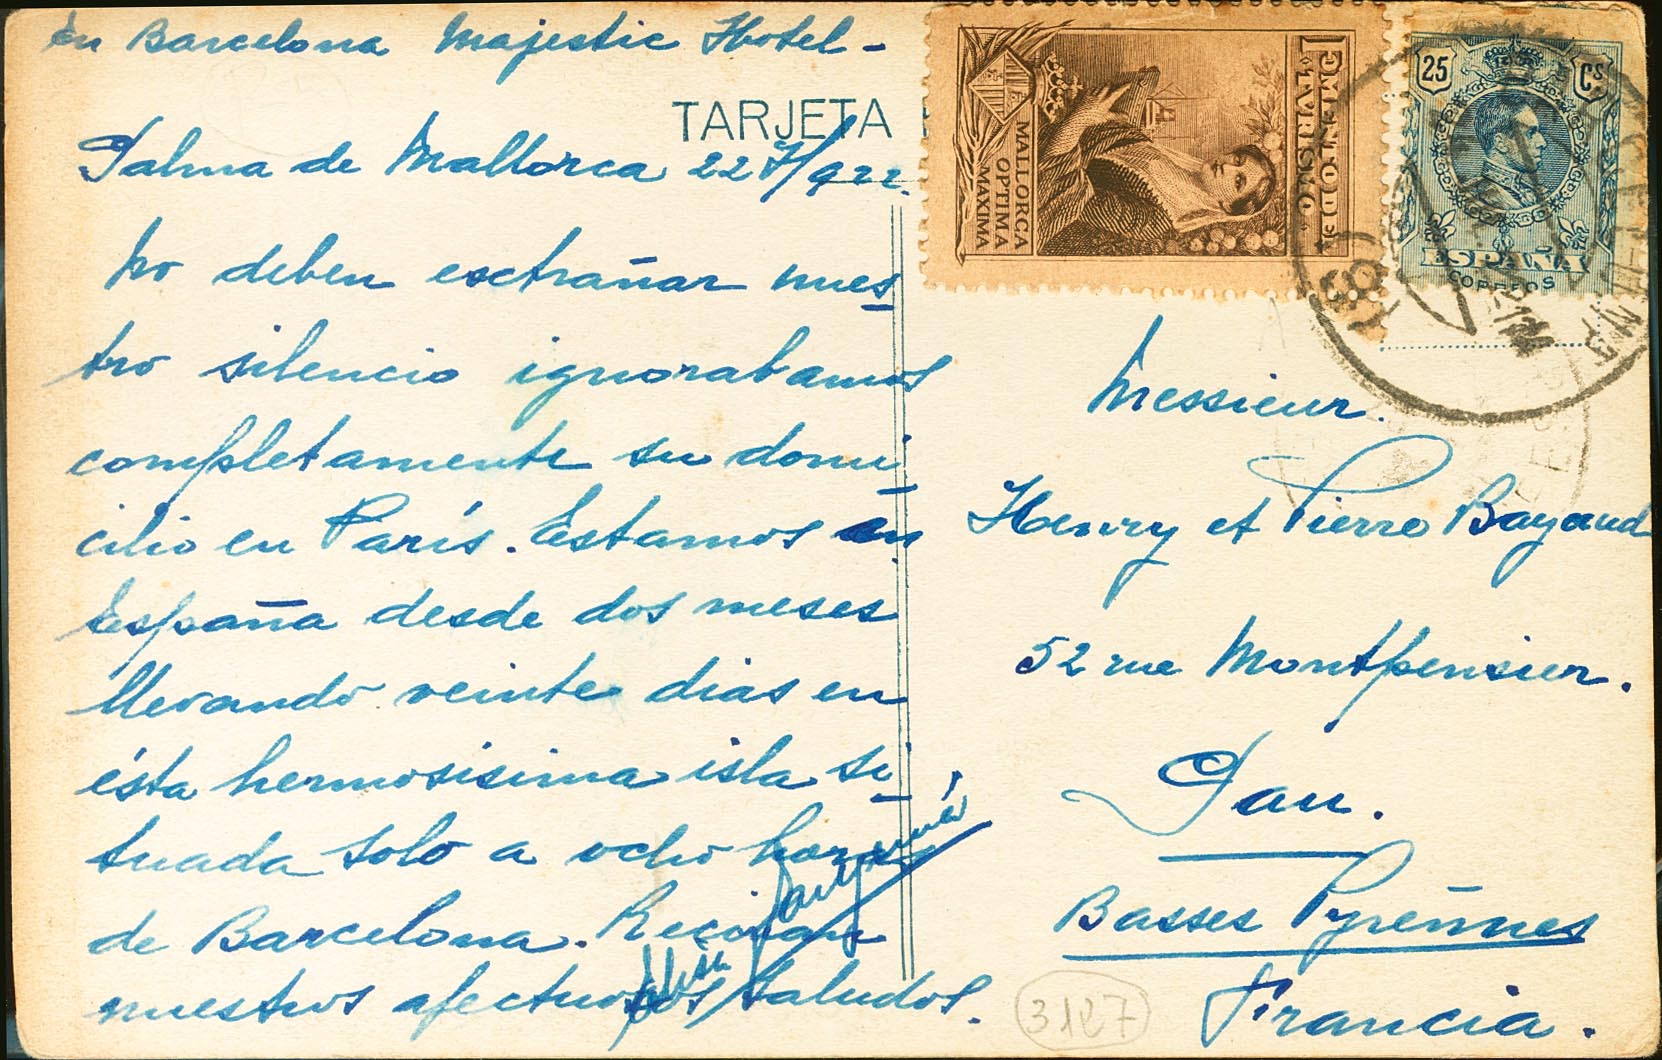 En Barcelona Majestic Hotel-
TARJETA
Palma de Mallorca 22 7/922.
No deben exctrañar nues
tro silencio ignorabamos
completamente su domi
cilio en París. Estamos en
España desde dos meses
llevando veinte dias en
ésta hermosisima isla si
tuada solo a ocho horas
de Barcelona. Reciban
nuestros afectuosos saludos.
FOMENTO DEL
TVRISMO
MALLORCA
OPTIMA
MAXIMA
25 Cs
ESPAÑA
CORREOS
Messieur.
Henry et Pierre Bayaud
52 rue Montpensier.
Pau.
Basses Pyrennés
Francia.
3127